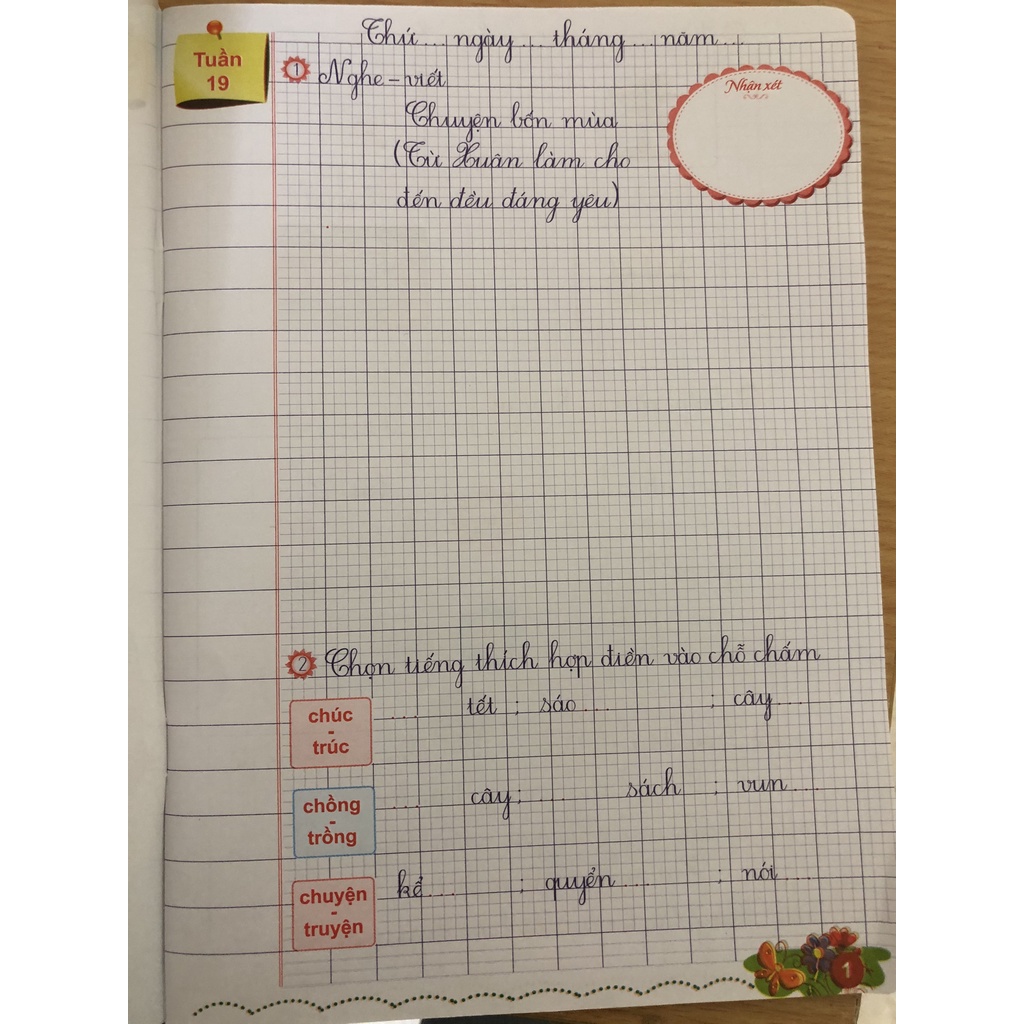 Tuần
19
Thứ... ngày... tháng... năm...
1 Nghe-viết
Nhận xét
Chuyện bốn mùa
(Từ Xuân làm cho
đến đều đáng yêu)
2 Chọn tiếng thích hợp điền vào chỗ chấm
chúc
-
trúc
.... tết ; sáo.... ; cây....
chồng
-
trồng
.... cây; .... sách ; vun....
chuyện
-
truyện
kể.... ; quyển.... ; nói....
1